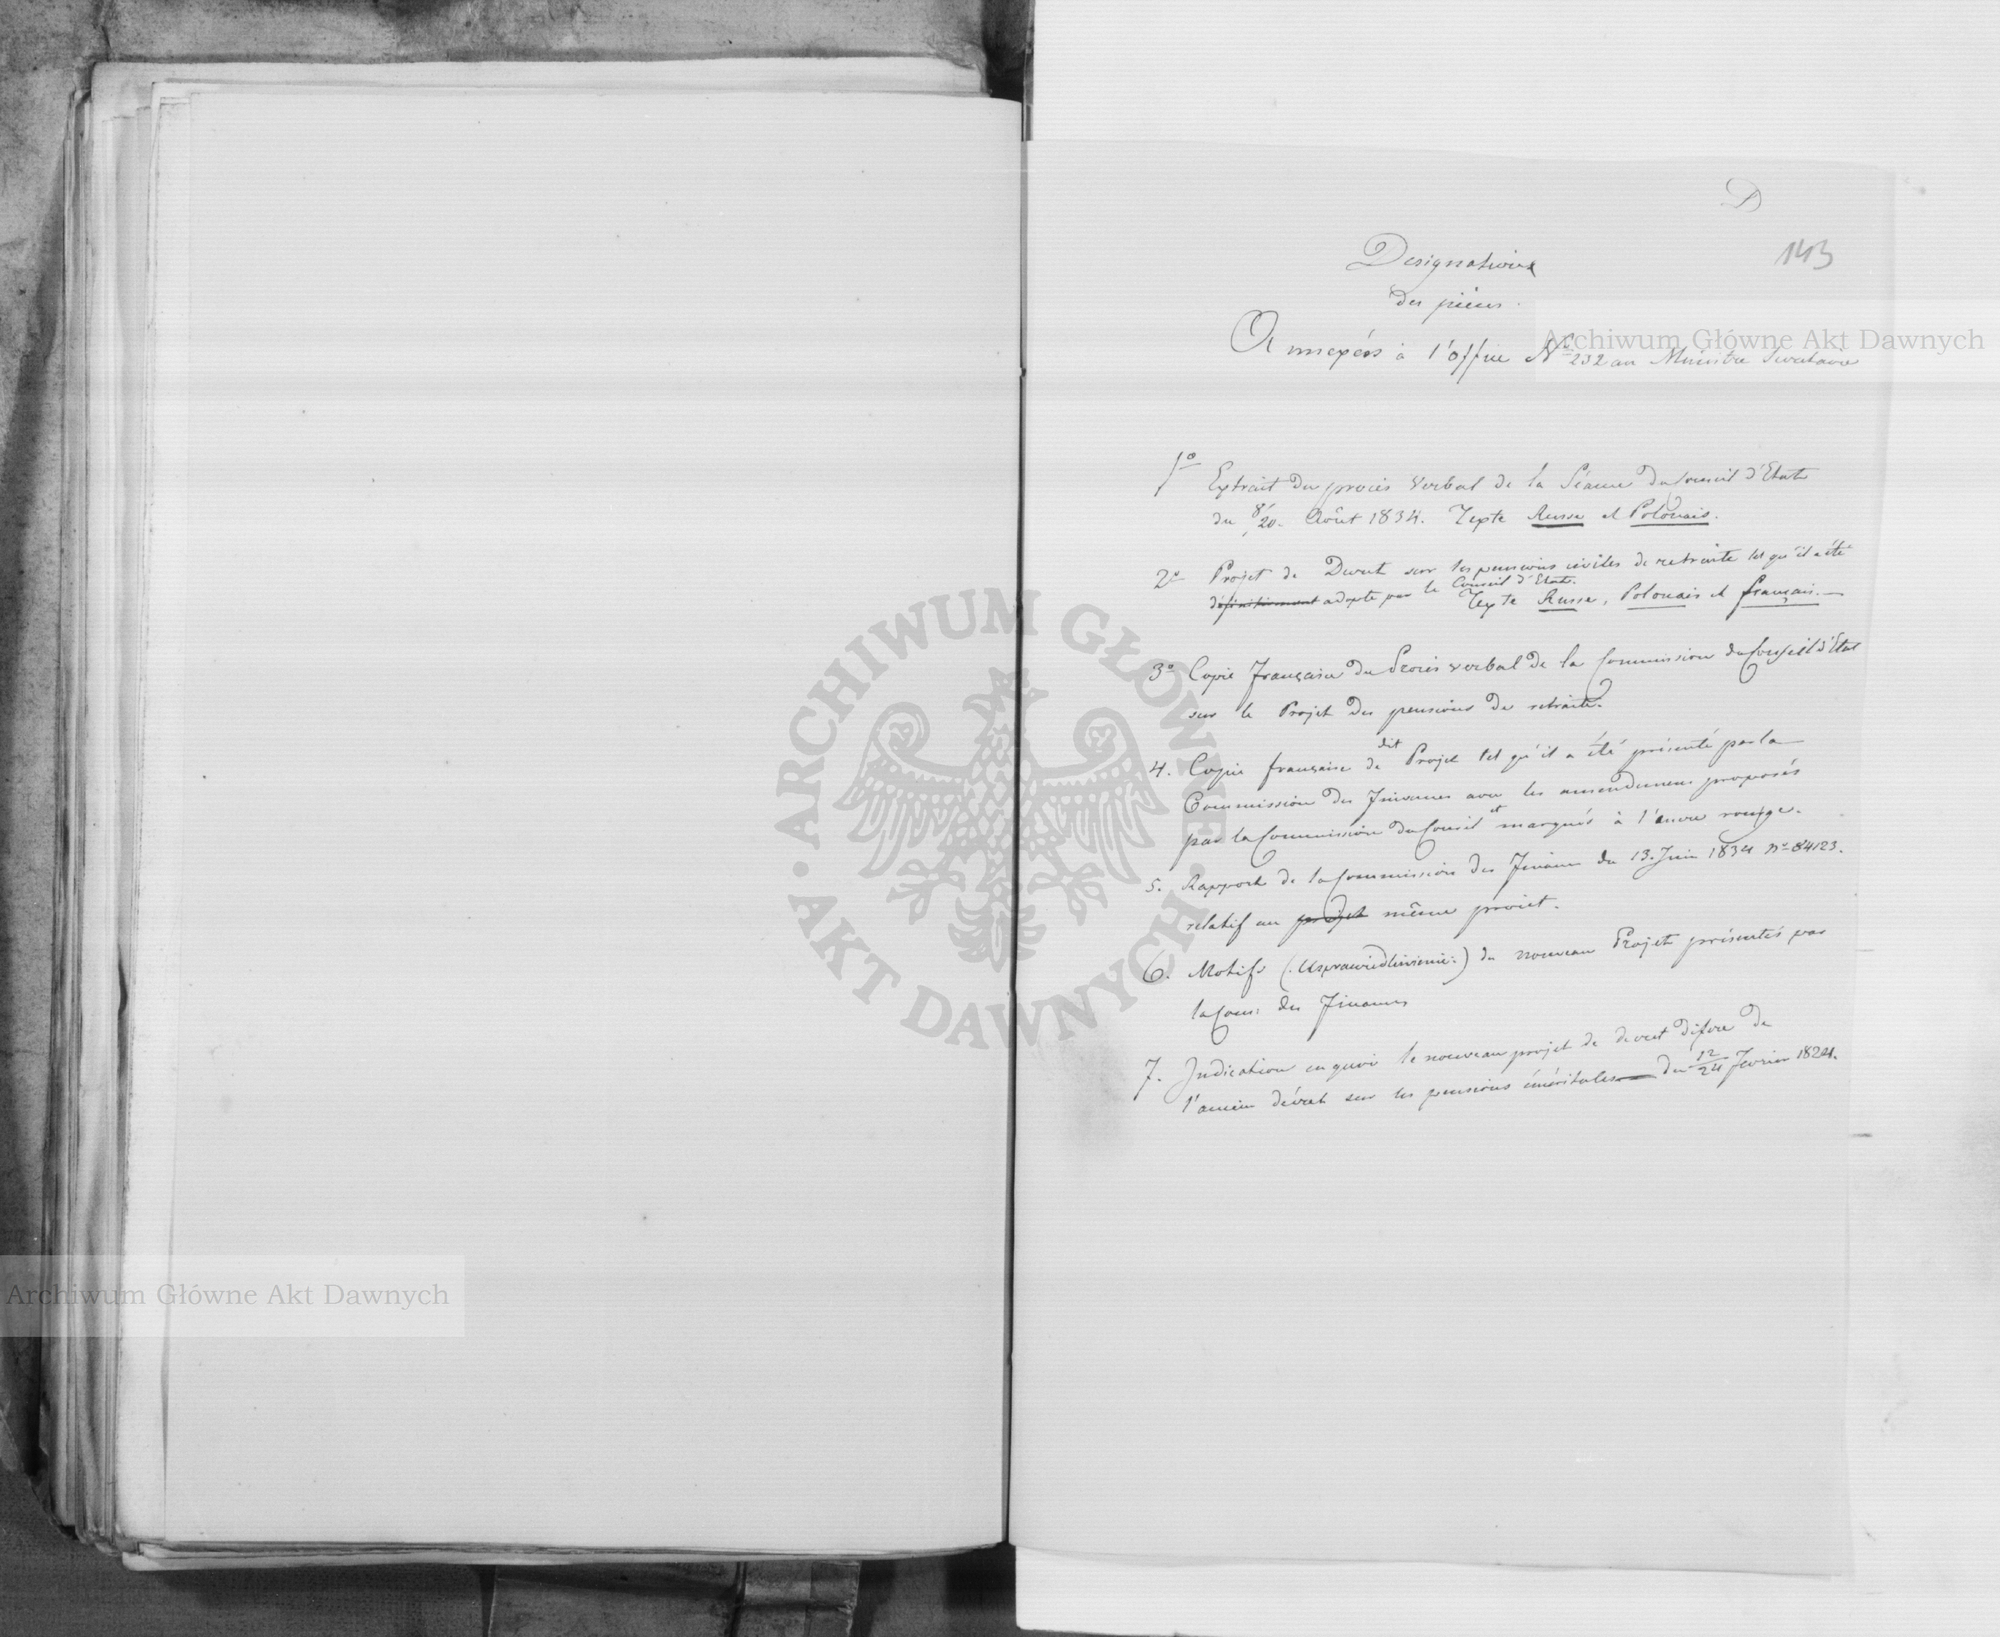 D
143
Designation
des pièces.
Annexées à l'office N° 232 au Ministre Secretaire
1° Extrait du procès verbal de la Séance du Conseil d'Etat
du 8/20. Août 1834. Texte Russe et Polonais.
2° Projet de Decret sur les pensions civiles de retraite tel qu'il a été
définitivement adopté par le Conseil d'Etat. Texte Russe, Polonais et français.
3° Copie française du Procès verbal de la Commission du Conseil d'Etat
sur le Projet des pensions de retraite.
4. Copie française de dit Projet tel qu'il a été présenté par la
Commission des Finances avec les amendemens proposés
par la Commission du Conseil et marqués à l'encre rouge.
5. Rapport de la Commission des Finances du 13. Juin 1834 N° 84123.
relatif au projet même projet.
6. Motifs (Usprawiedliwienie:) du nouveau Projet présentés par
la Com: des Finances
7. Indication en quoi le nouveau projet de decret difère de
l'ancien décret sur les pensions éméritales du 12/24 Fevrier 1824.
Archiwum Główne Akt Dawnych
ARCHIWUM GŁÓWNE · AKT DAWNYCH ·
Archiwum Główne Akt Dawnych